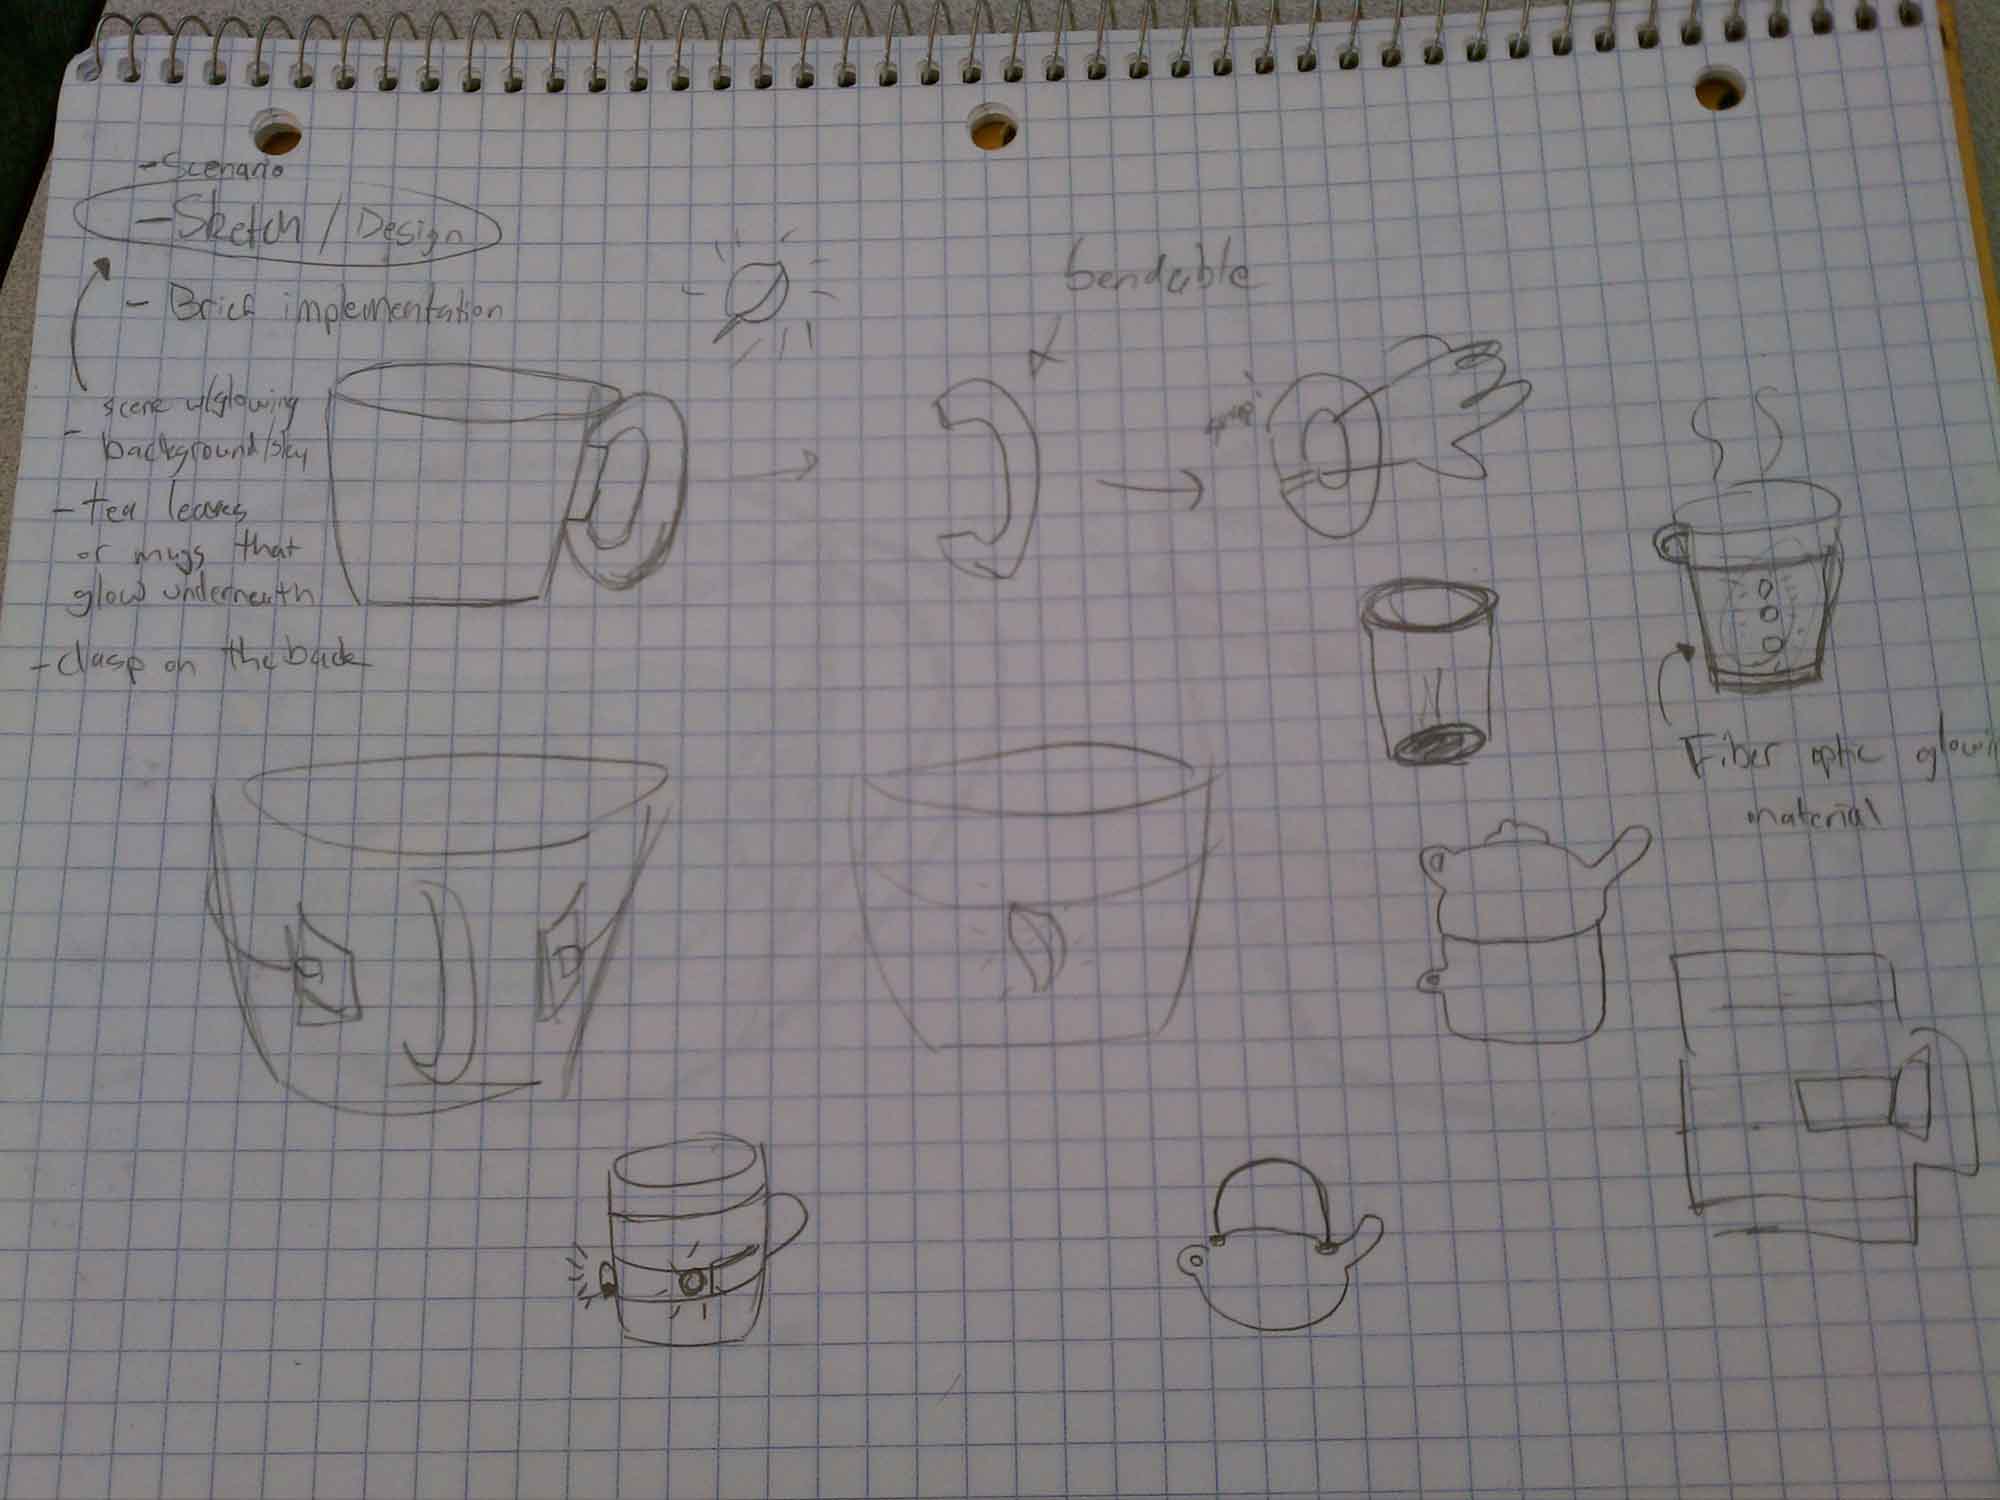 - Scenario
- Sketch / Design
- Brief implementation
- scene w/glowing
background/sky
- tea leaves
or mugs that
glow underneath
- clasp on the back
bendable
Fiber optic
material